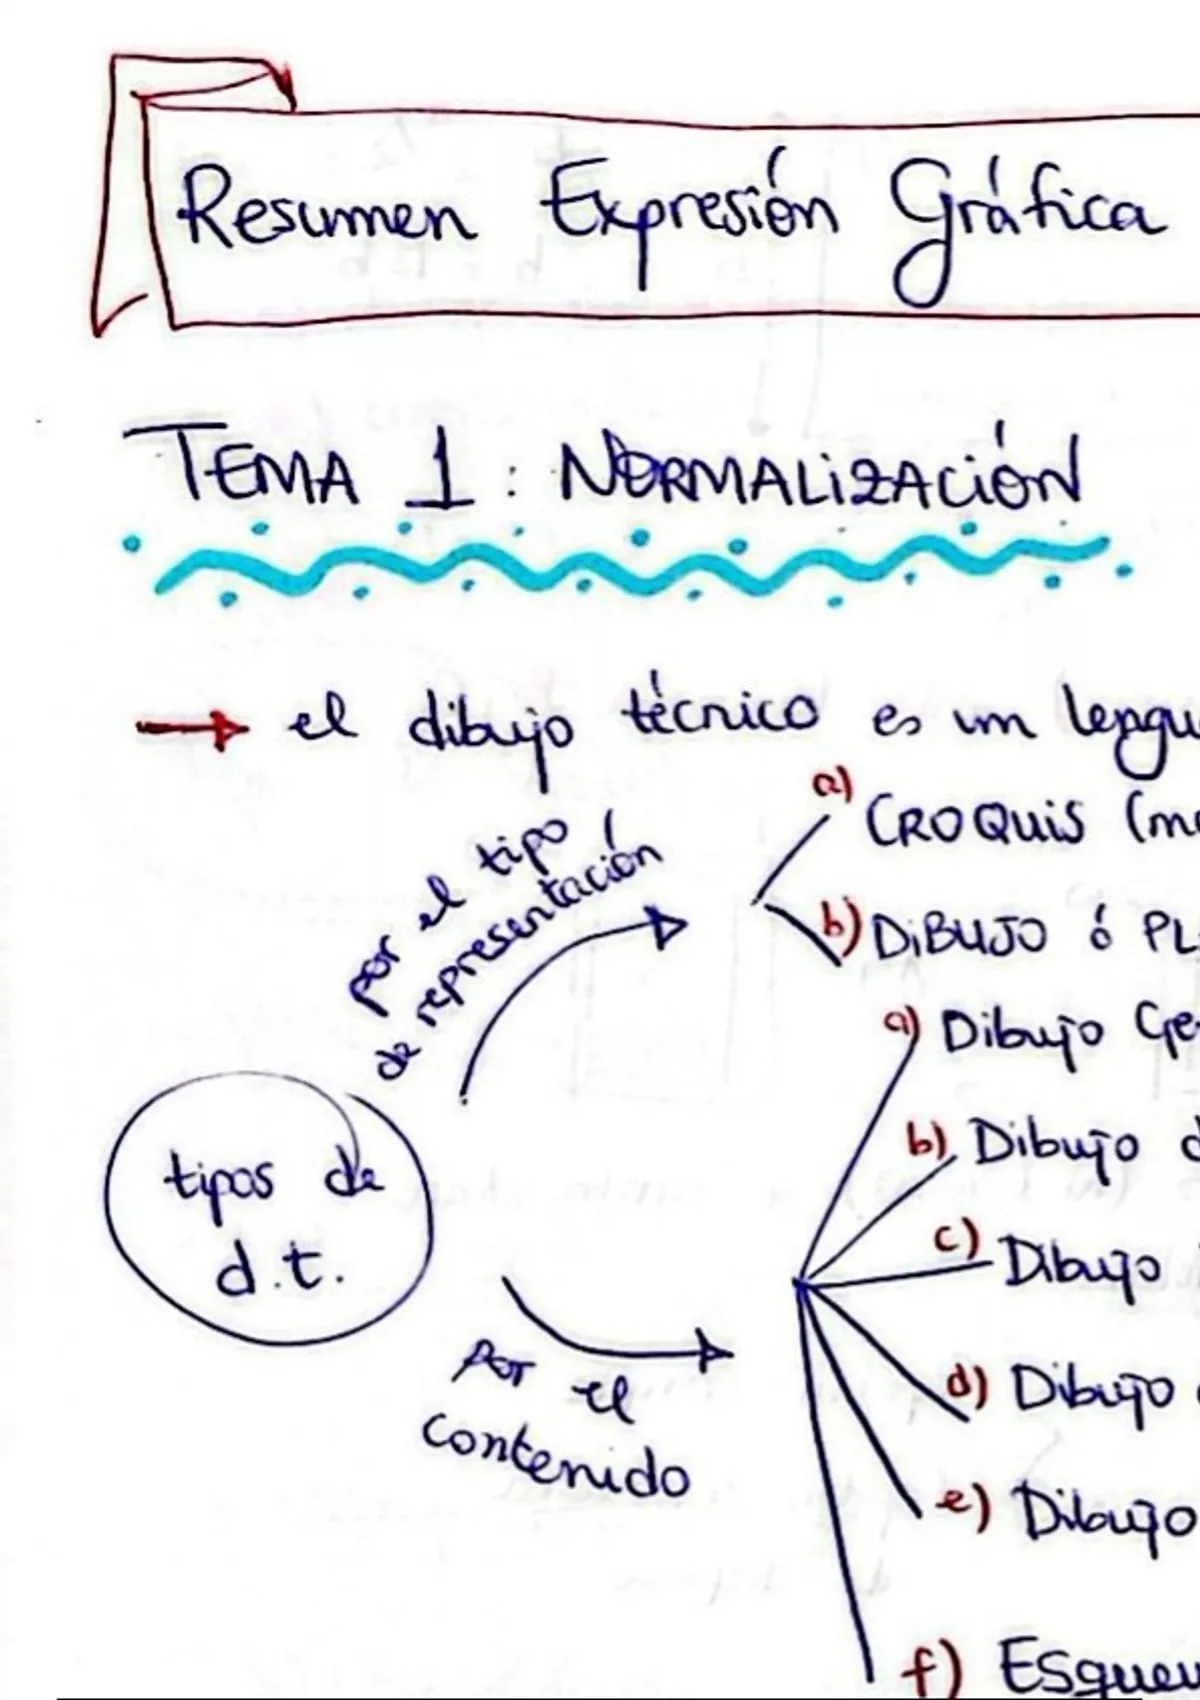 Resumen Expresión Gráfica
TEMA 1: NORMALiZACióN
el dibujo técnico es un lengu
por el tipo
de representación
a) CROQUiS (m
b) DiBUJO ó PL
tipos de
d.t.
por el
contenido
a) Dibujo Ge
b) Dibujo d
c) Dibujo
d) Dibujo
e) Dibujo
f) Esquem